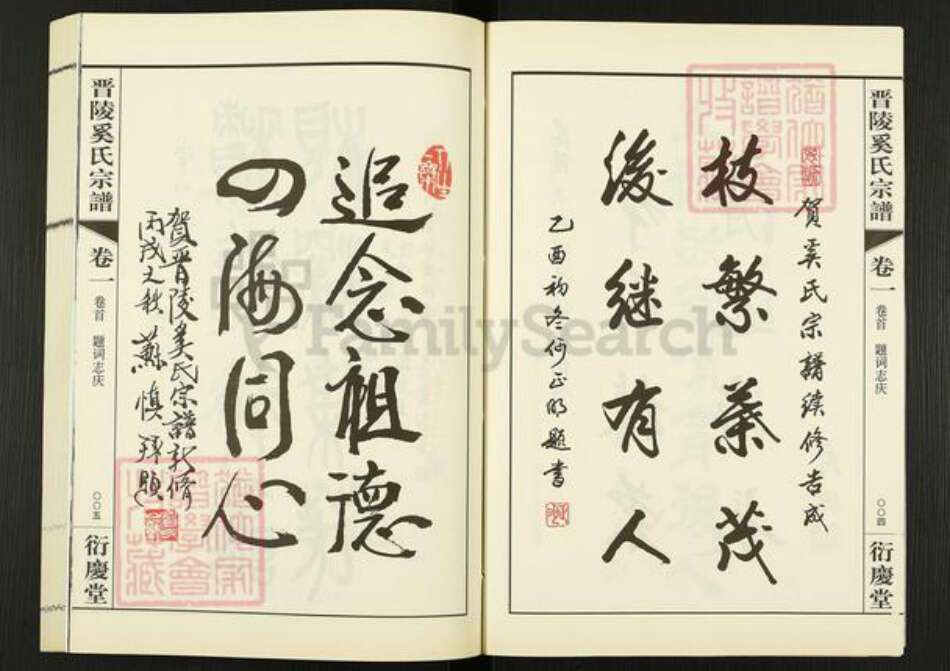 晋陵奚氏宗譜
卷一
卷首 题词志庆
〇〇四
衍慶堂
賀奚氏宗譜续修告成
枝繁葉茂
後继有人
乙酉初冬何正明题書
追念祖德
四海同心
賀晋陵奚氏宗譜新修
丙戌之秋蘇慎拜題
晋陵奚氏宗譜
卷一
卷首 题词志庆
〇〇五
衍慶堂
FamilySearch